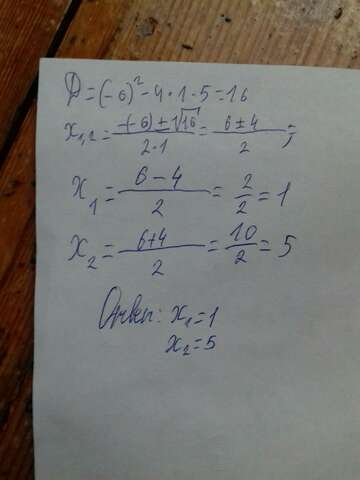 D=(-6)²-4·1·5=16
x₁,₂=-(-6)±√16/2·1=6±4/2;
x₁=6-4/2=2/2=1
x₂=6+4/2=10/2=5
Ответ: x₁=1
x₂=5